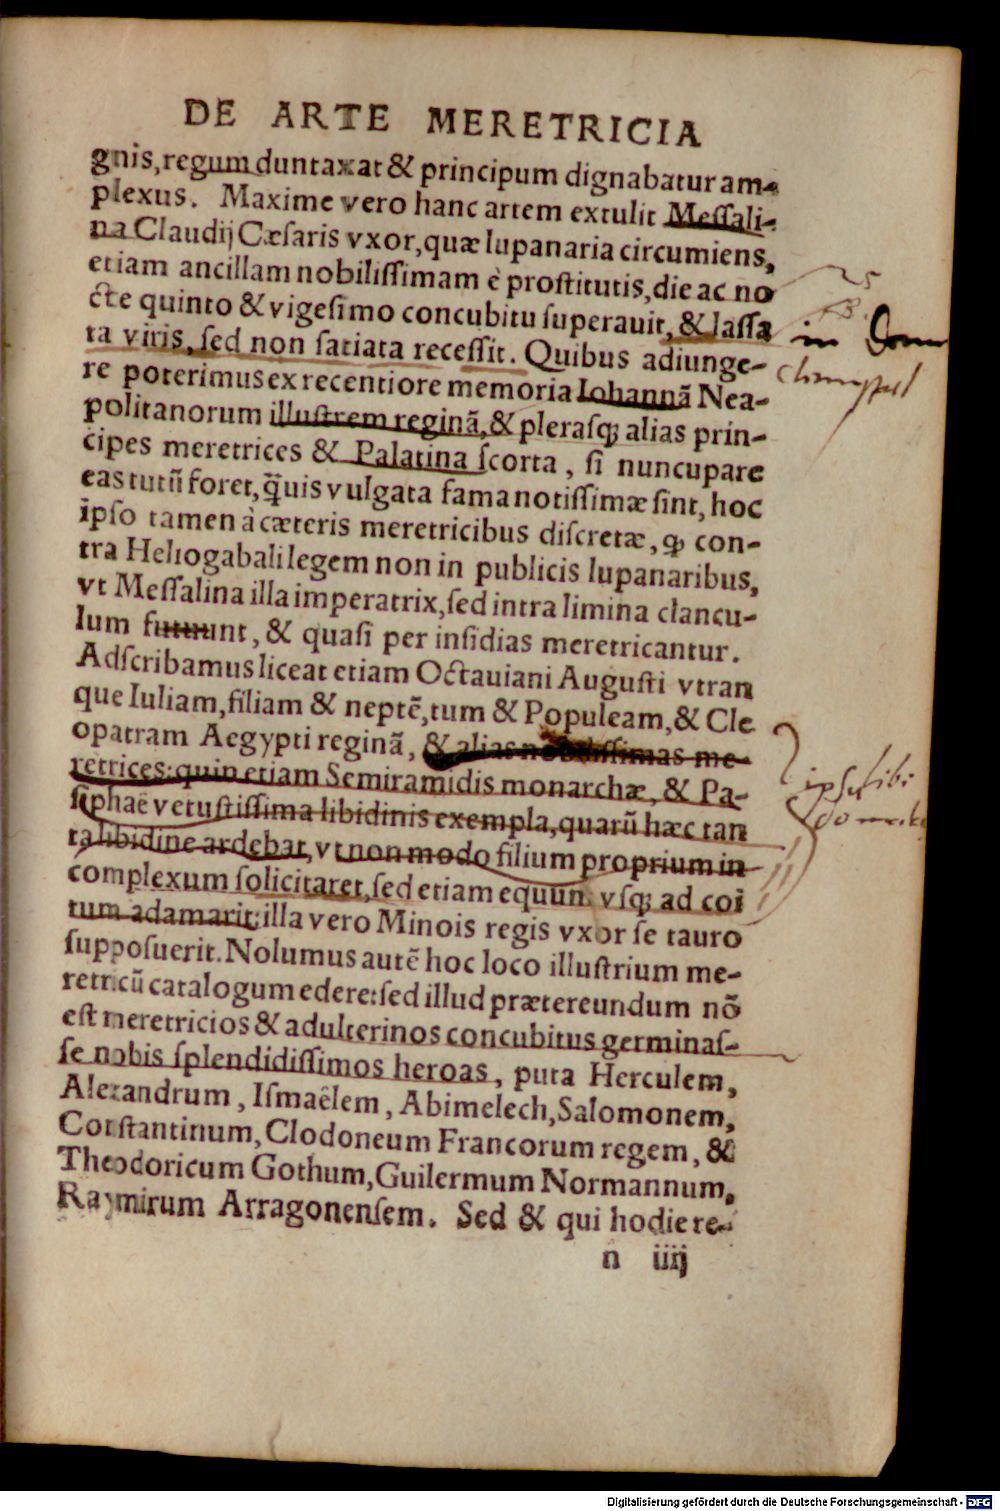 DE ARTE MERETRICIA
gnis, regum duntaxat & principum dignabatur am-
plexus. Maxime vero hanc artem extulit Meſſali-
na Claudij Cæſaris vxor, quæ lupanaria circumiens,
etiam ancillam nobiliſſimam è proſtitutis, die ac no
cte quinto & vigeſimo concubitu ſuperauit, & laſſa
ta viris, ſed non ſatiata receſſit. Quibus adiunge-
re poterimus ex recentiore memoria Iohannã Nea-
politanorum illuſtrem reginã, & pleraſq; alias prin-
cipes meretrices & Palatina ſcorta, ſi nuncupare
eas tutũ foret, q̃uis vulgata fama notiſſimæ ſint, hoc
ipſo tamen à cæteris meretricibus diſcretæ, ꝙ con-
tra Heliogabali legem non in publicis lupanaribus,
vt Meſſalina illa imperatrix, ſed intra limina clancu-
lum futuunt, & quaſi per inſidias meretricantur.
Adſcribamus liceat etiam Octauiani Auguſti vtran
que Iuliam, filiam & neptẽ, tum & Populeam, & Cle
opatram Aegypti reginã, & alias nobiliſſimas me-
retrices: quin etiam Semiramidis monarchæ, & Pa-
ſiphaë vetuſtiſſima libidinis exempla, quarũ hæc tan
ta libidine ardebat, vt non modo filium proprium in
complexum ſolicitaret, ſed etiam equum vſq; ad coi
tum adamarit: illa vero Minois regis vxor ſe tauro
ſuppoſuerit. Nolumus autẽ hoc loco illuſtrium me-
retricũ catalogum edere: ſed illud prætereundum nõ
eſt meretricios & adulterinos concubitus germinaſ-
ſe nobis ſplendidiſſimos heroas, puta Herculem,
Alexandrum, Iſmaëlem, Abimelech, Salomonem,
Conſtantinum, Clodoneum Francorum regem, &
Theodoricum Gothum, Guilermum Normannum,
Raymirum Arragonenſem. Sed & qui hodie re-
n iiij
25
in
ipſu libi
Digitalisierung gefördert durch die Deutsche Forschungsgemeinschaft - DFG